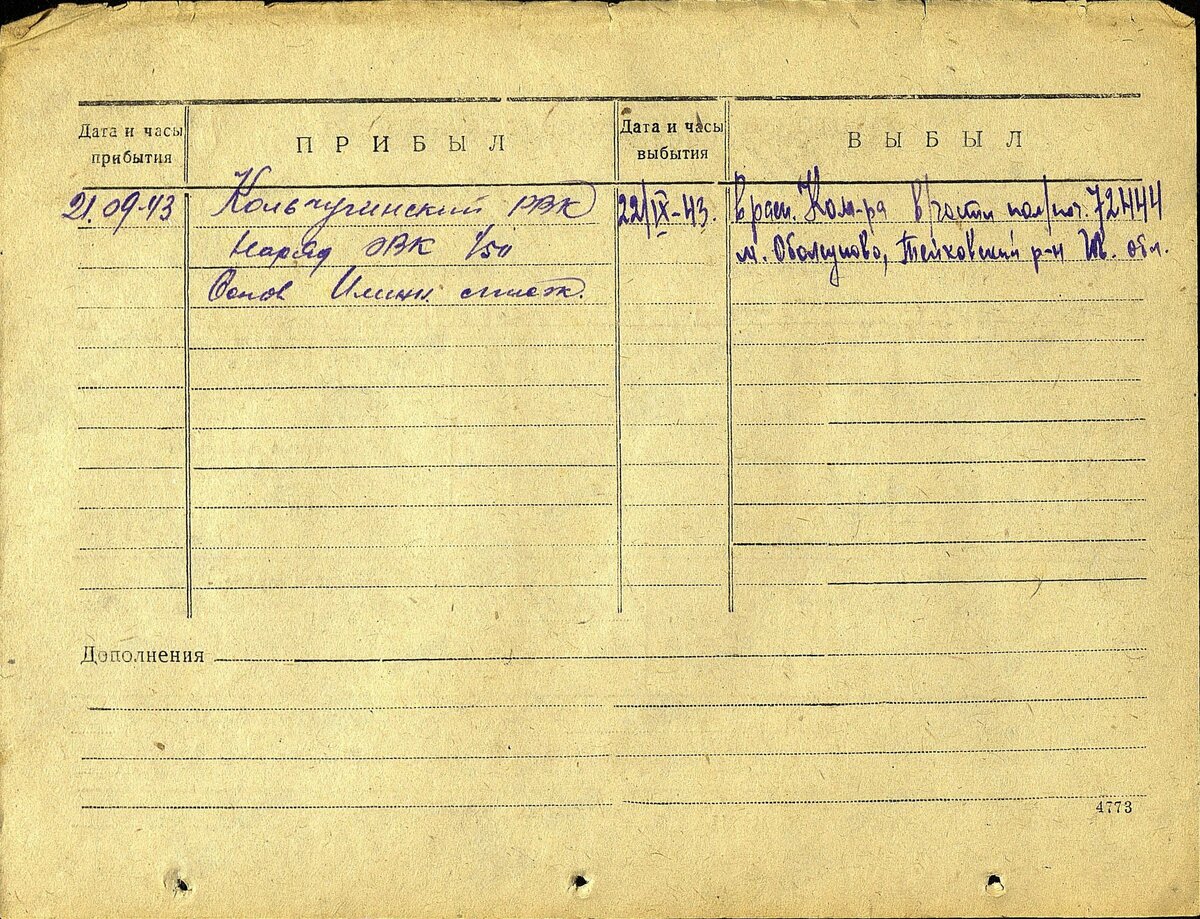 Дата и часы прибытия
ПРИБЫЛ
Дата и часы выбытия
ВЫБЫЛ
21.09.43
Кольчугинский РВК
Наряд ОВК 1/50
22/IX-43.
В расп. Ком-ра в/части пол/поч. 72444
м. Оболсуново, Тейковский р-н Ив. обл.
Дополнения
4773